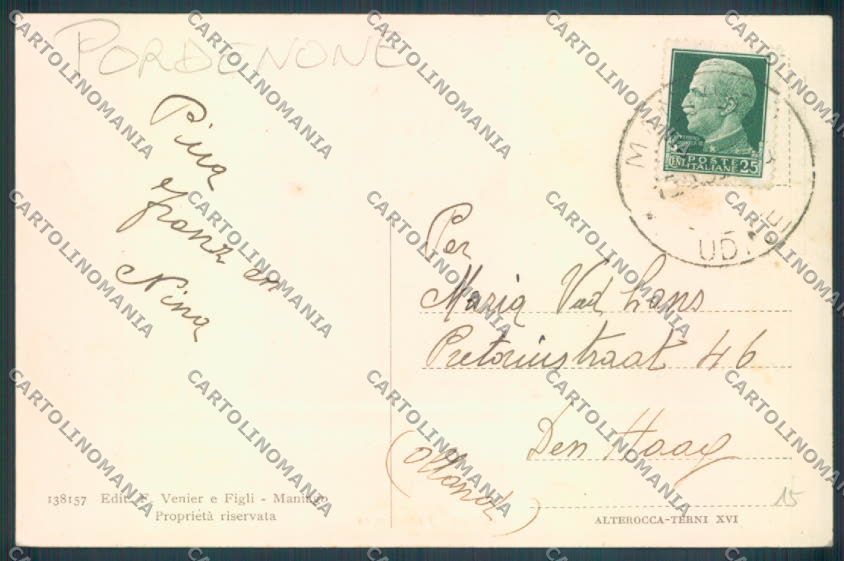 PORDENONE
Pina
Franz en
Nina
POSTE
ITALIANE
CENT. 25
UDINE
Per
Maria
Pretoriusstraat 46
Den Haag
(Olanda)
138157 Edit. F. Venier e Figli - Maniago
Propriétà riservata
ALTEROCCA-TERNI XVI
15
CARTOLINOMANIA